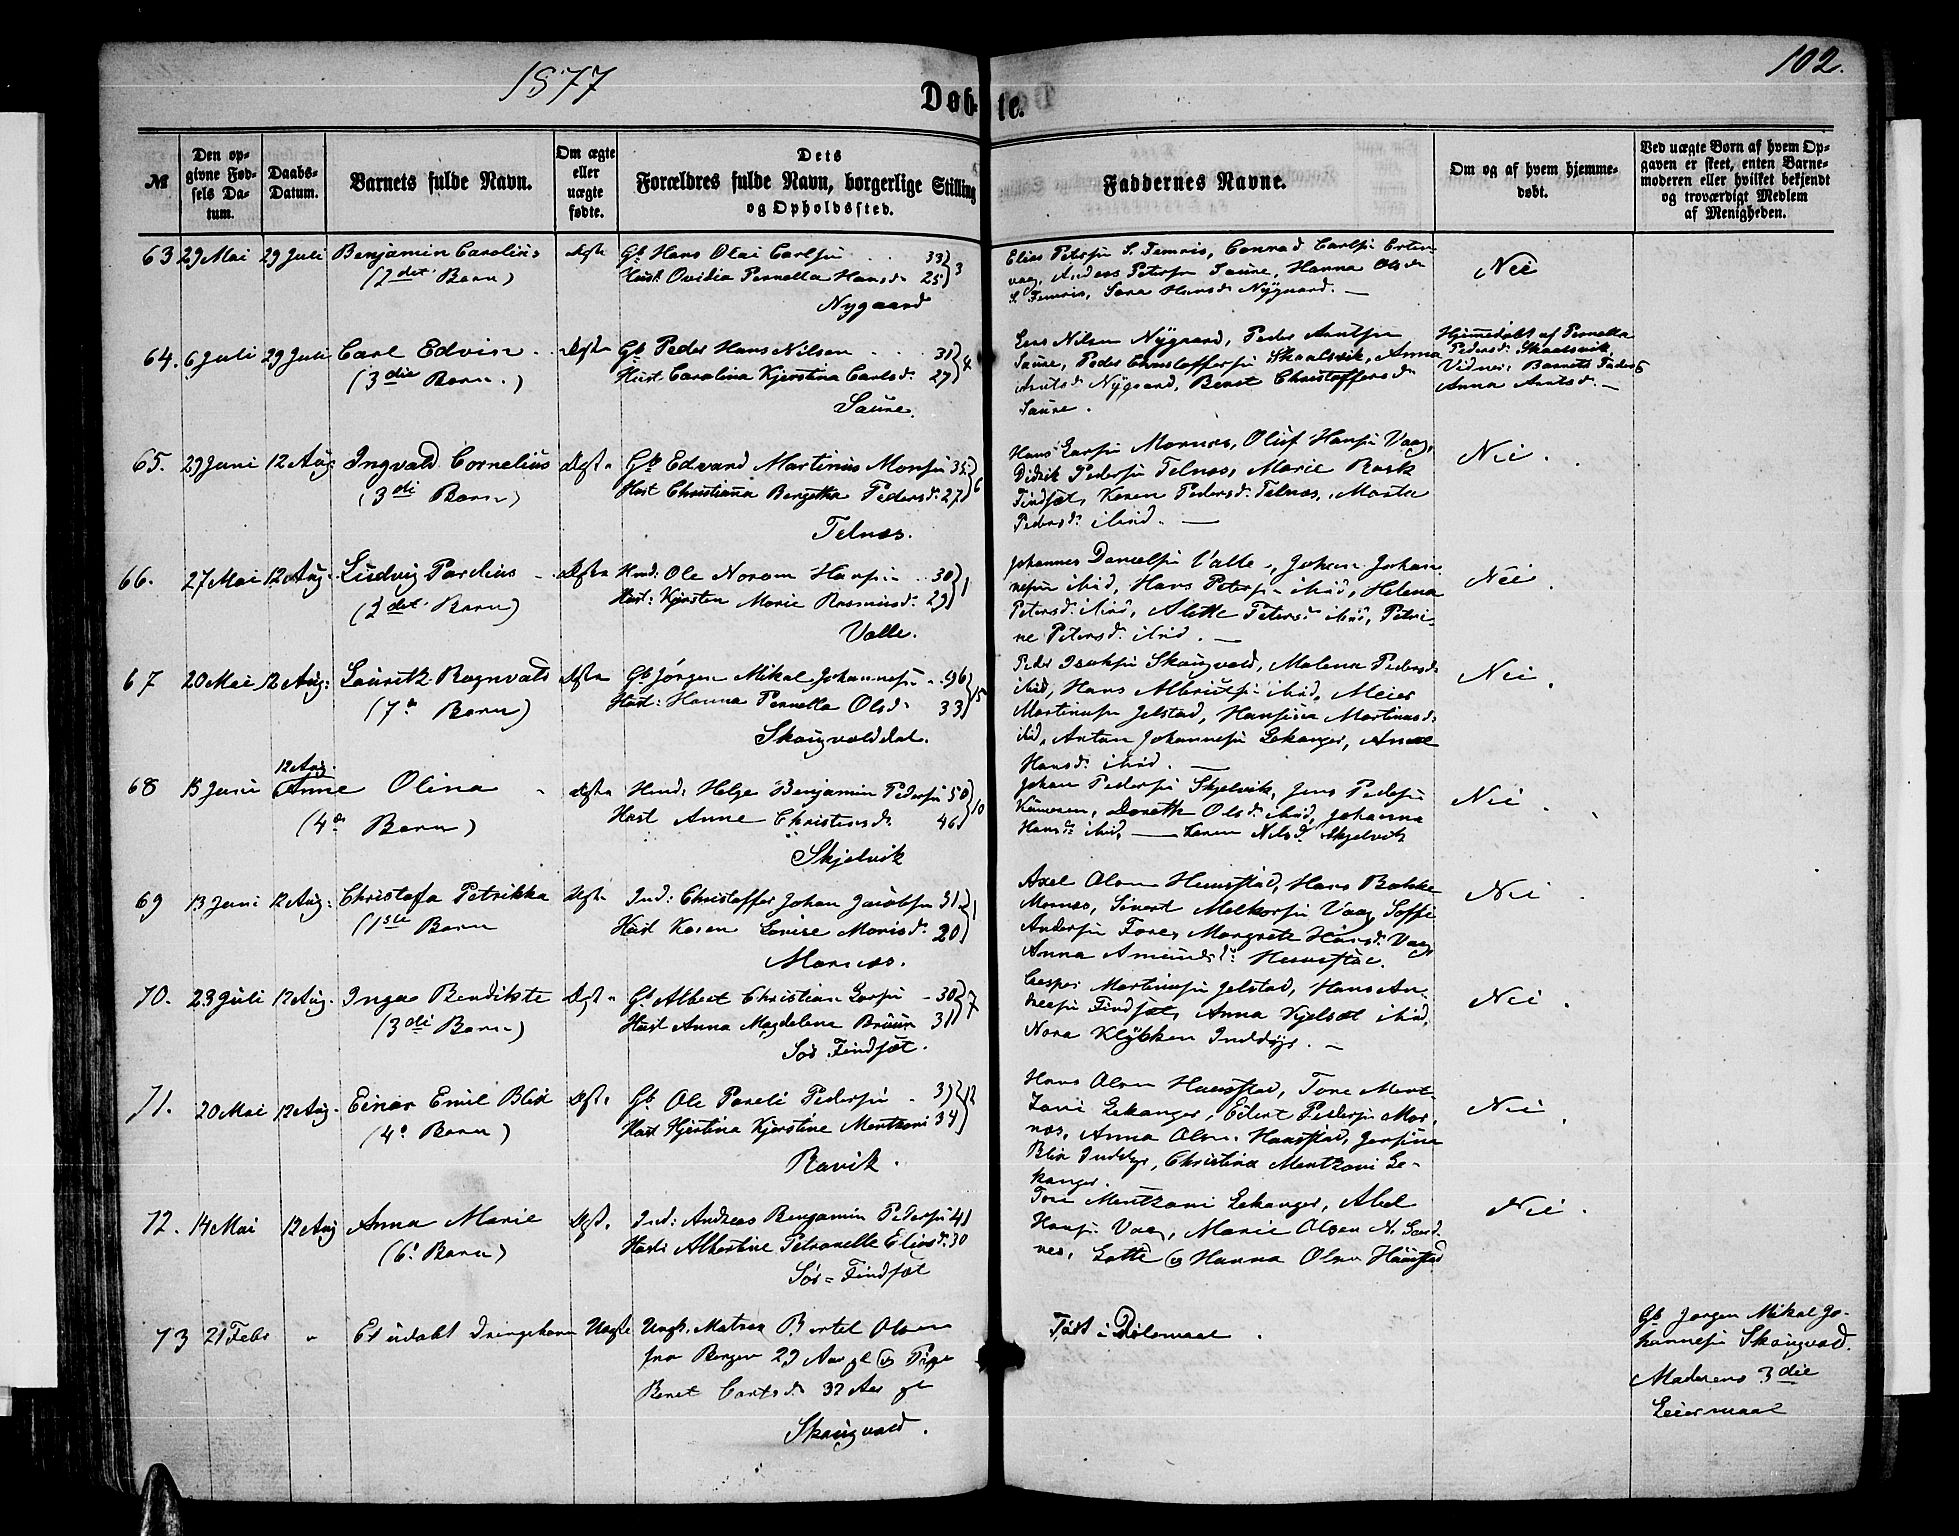 1877
102.
Døbte.
№
Den opgivne Fødsels Datum.
Daabs-Datum.
Barnets fulde Navn.
Om ægte eller uægte fødte.
Dets Forældres fulde Navn, borgerlige Stilling og Opholdssted.
Faddernes Navne.
Om og af hvem hjemmedøbt.
Ved uægte Børn af hvem Opgaven er skeet, enten Barnemoderen eller hvilket bekjendt og troværdigt Medlem af Menigheden.
63 29 Mai 29 Juli Benjamin Carolius Ægte Gb Hans Olai Carlsen 33
(2det Barn) Hust: Ovidia Pernella Hansd. 25 3
Nygaard
Elias Petersen S. Femris, Conrad Carlsen
vag, Anders Petersen Saure, Hanna Olsd
S. Femris, Sara Hansd Nygaard. —
Nei
64. 6 Juli 29 Juli Carl Edvin Ægte Gb Peder Hans Nilsen 31
(3die Barn.) Hust. Carolina Kjerstina Carlsd. 27 4
Saure.
Lars Nilsen Nygaard, Peder Arntsen
Saure, Peder Christoffersen Skaalsvik, Anna
Arntsd. Nygaard, Beret Christoffersd
Saure.
Hjemmedøbt af Pernella
Pedersd. Skaalsvik
Vidner: Barnets Fader &
Anna Arntsd. —
65. 29 Juni 12 Aug: Ingvald Cornelius Ægte Gb Edvard Martinus Monsen 35
(3di Barn) Hust Christianna Bergetha Pedersd. 27 6
Telnæs.
Hans Larsen Mornæs, Oluf Hansen Vaag,
Didrik Pedersen Telnæs, Marie Rask
Findset, Karen Pedersd. Telnæs, Marta
Pedersd. ibid. —
Nei.
66. 27 Mai 12 Aug. Ludvig Pardeius Ægte Hmd: Ole Norum Hansen 30
(2det Barn) Hust: Kjersten Marie Rasmusd. 29 1
Valle.
Johannes Danielsen Valle, Johan Johan-
nesen ibid, Hans Petersen ibid, Helena
Petersd. ibid, Alette Petersd ibid, Petri-
ne Petersd. ibid. —
Nei.
67 20 Mai 12 Aug: Lauritz Ragnvald Ægte Gb Jørgen Mikal Johannesen 46
(7de Barn) Hust: Hanna Pernella Olsd. 33 15
Skaugvolddal.
Peder Isaksen Skaugvold, Malena Pedersd.
ibid, Hans Albrigtsen ibid, Meier
Martinusen Jelstad, Hansina Martinusd.
ibid, Antan Johannesen Lekanger, Anne
Hansd. ibid. —
Nei.
68 15 Juni 12 Aug. Anne Olina Ægte Hmd: Helge Benjamin Pedersen 50
(4de Barn) Hust Anne Christensd. 46 10
Skjelvik
Johan Pedersen Skjelvik, Jens Pedersen
Doreth Olsd. ibid, Johanna
Hansd. ibid, — Karen Nilsd. Skjelvik
Nei.
69 13 Juni 12 Aug: Christoffa Petrikka Ægte Ind: Christoffer Johan Jacobsen 31
(1ste Barn Hust Karen Lovise Monsd. 20 1
Mornæs.
Axel Olsen Haustad, Hans Bakke
Mornæs, Sivert Melkorsen Vaag, Soffie
Andersen Fore, Margrete Hansd. Vaag,
Anna Amundsd: Haustad.
Nei.
70. 23 Juli 12 Aug. Inga Bendikte Ægte Gb Albert Christian Larsen 30
(3di Barn) Hust Anna Magdelena Bruun 31 7
Sør Findset.
Casper Martinusen Jelstad, Hans An-
dersen Findset, Anna Kjelsat ibid,
Nora Klykken Inddyr. —
Nei.
71. 20 Mai 12 Aug. Einar Emil Blix Ægte Gb. Ole Pareli Pedersen 39
(4de Barn) Hust Hjertina Kjerstine Mentzoni 34 12
Ravik.
Hans Olsen Haustad, Tore Ment-
zoni Lekanger, Edert Pedersen Mor-
næs, Anna Olsen Haustad, Jensine
Blix Inddyr, Christina Mentzoni Le-
kanger.
Nei.
72. 14 Mai 12 Aug Anna Marie Ægte Ind: Andreas Benjamin Pedersen 41
(6te Barn) Hust: Albertine Petronelle Eliasd. 30
Sør-Findset
Tore Mentzoni Lekanger, Abel
Hansen Vaag, Marie Olsen N. Sand-
nes, Lotte og Hanna Olsen Haustad
Nei.
73 21 Febr " Et udøbt Drengebarn Uægte Ungk. Matros Bertel Olsen
fra Bergen 29 Aar gl og Pige
Beret Carlsd 32 Aar gl
Skaugvold.
Født i Dølsmaal.
Gb Jørgen Mikal Jo-
hannesen Skaugvold.
Moderens 3die
Leiermaal